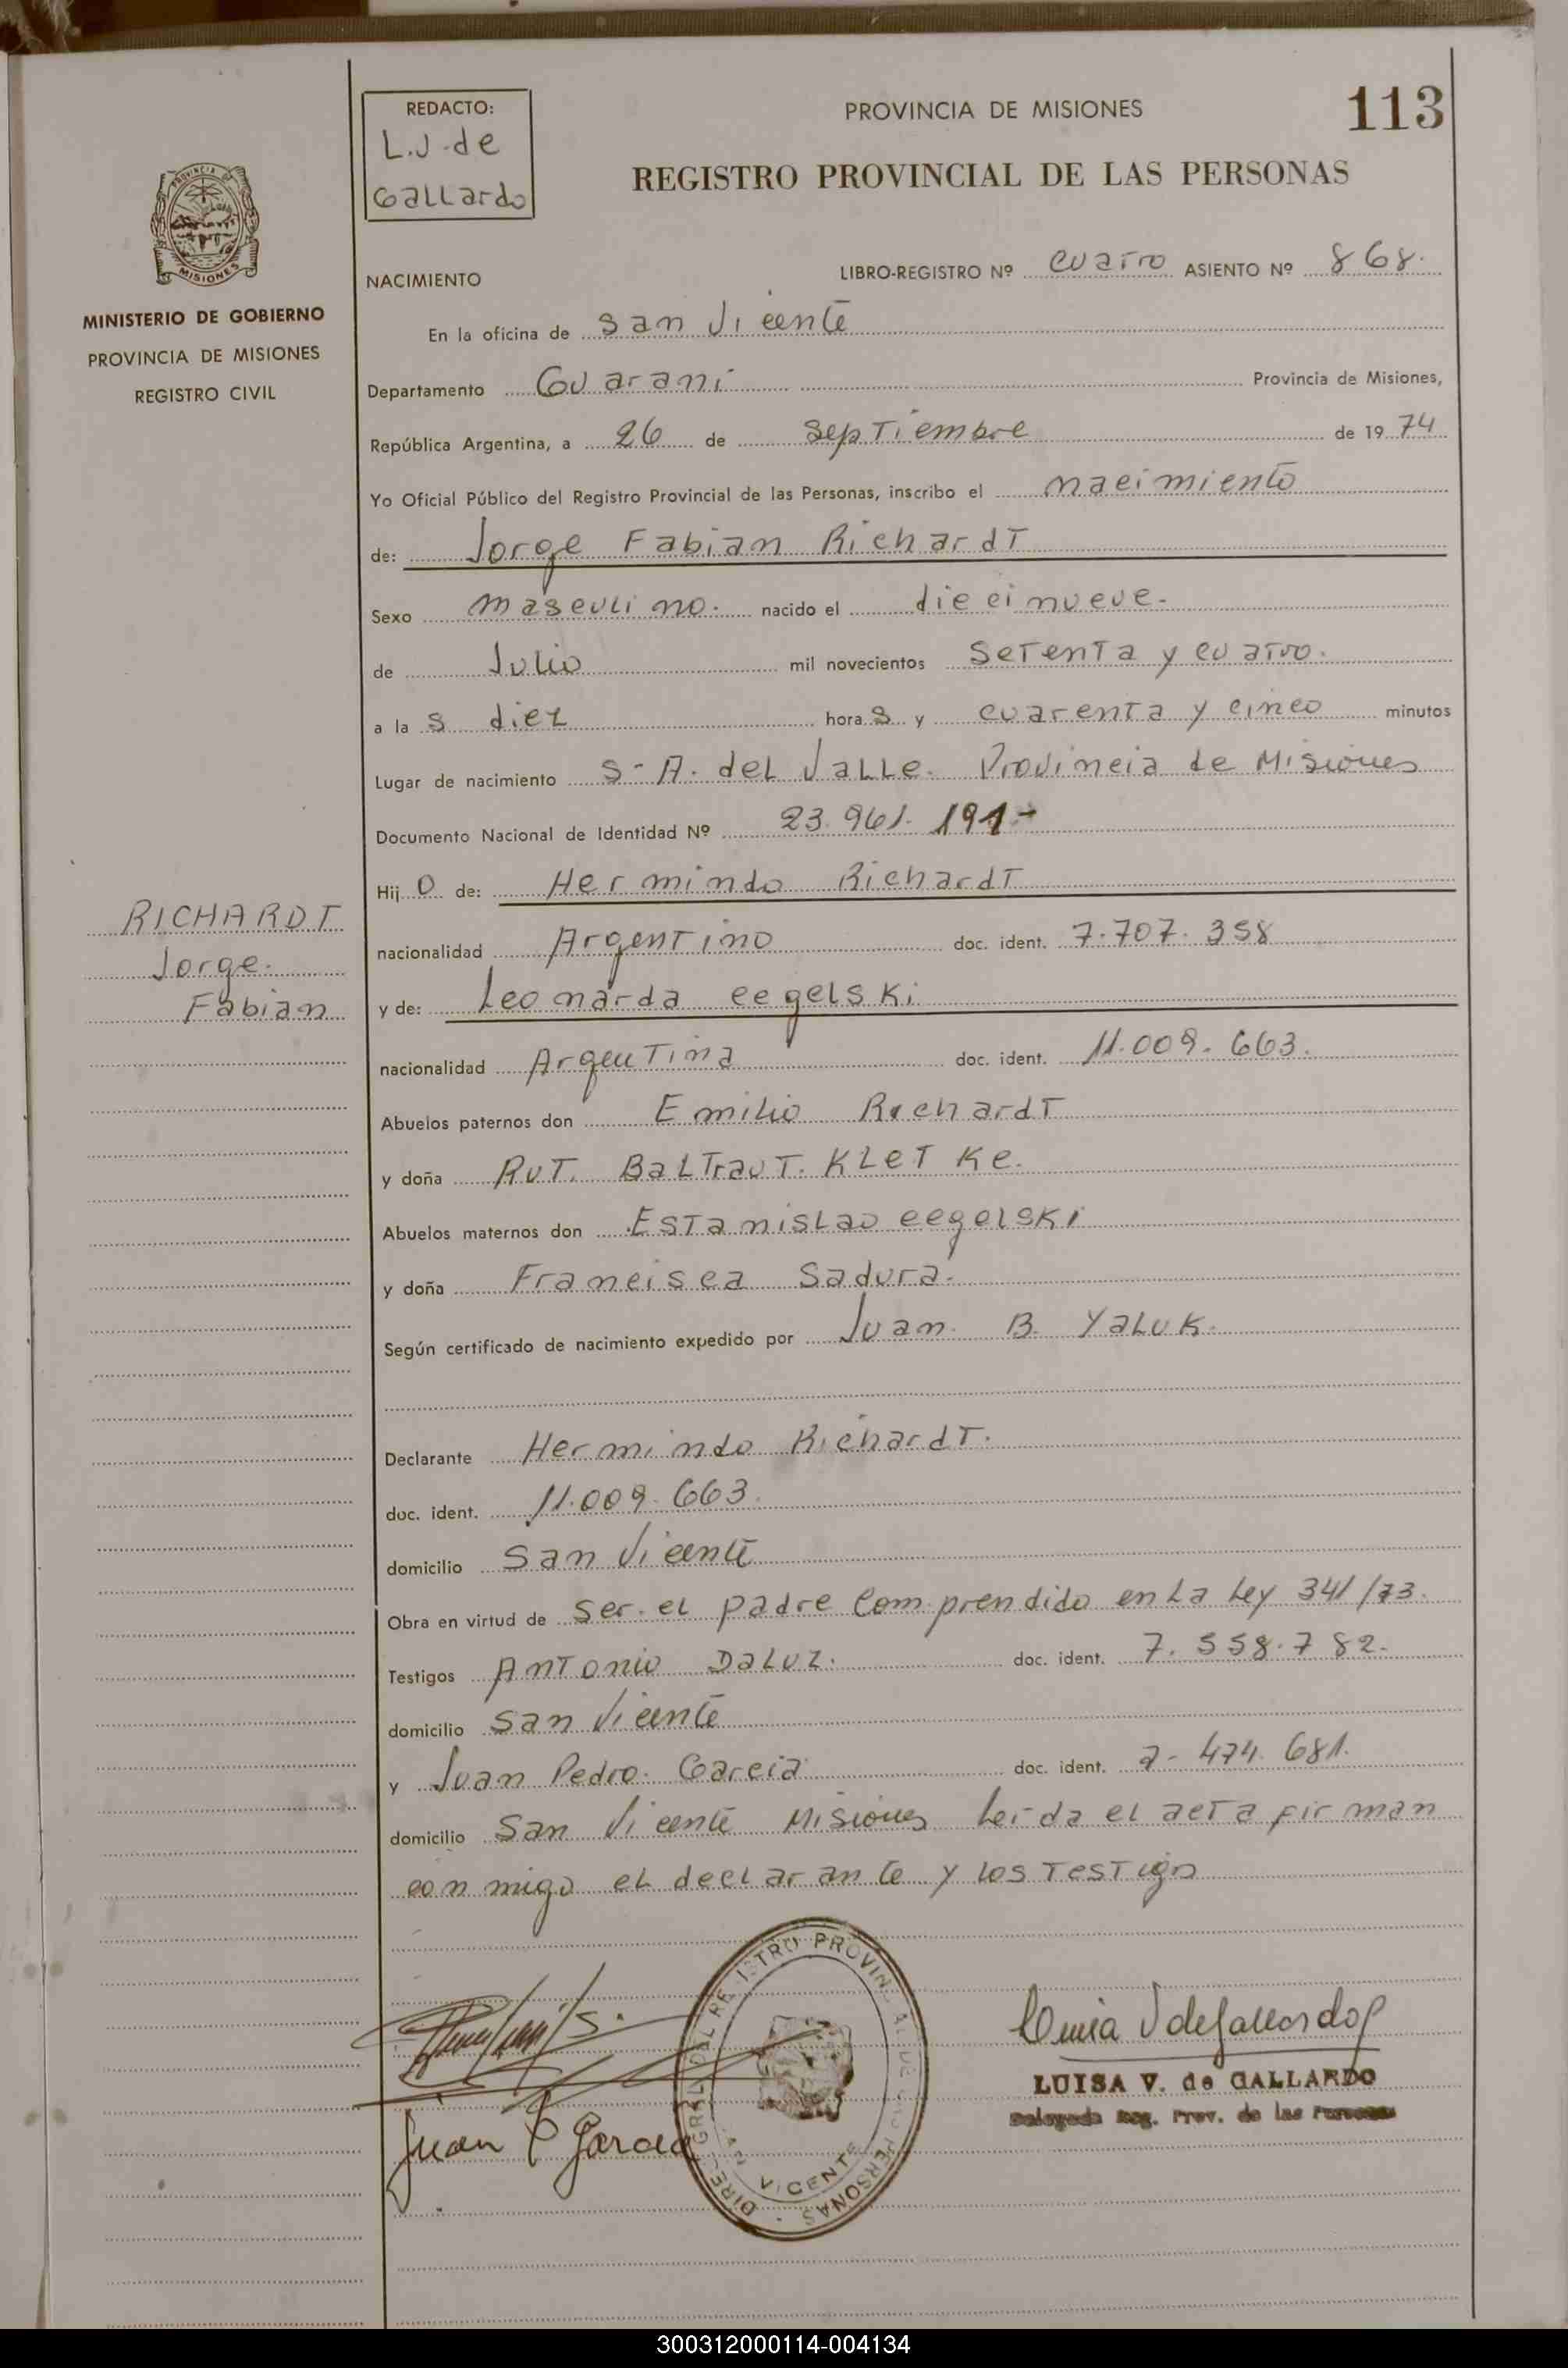 113
PROVINCIA DE MISIONES
REGISTRO PROVINCIAL DE LAS PERSONAS
REDACTO:
L.V. de
Gallardo
PROVINCIA DE
MISIONES
MINISTERIO DE GOBIERNO
PROVINCIA DE MISIONES
REGISTRO CIVIL
RICHARDT
Jorge.
Fabian
NACIMIENTO
LIBRO-REGISTRO Nº cuatro ASIENTO Nº 868.
En la oficina de San Vicente
Departamento Guarani Provincia de Misiones,
República Argentina, a 26 de septiembre de 1974
Yo Oficial Público del Registro Provincial de las Personas, inscribo el nacimiento
de: Jorge Fabian Richardt
Sexo masculino. nacido el diecinueve-
de Julio mil novecientos setenta y cuatro.
a las diez horas y cuarenta y cinco minutos
Lugar de nacimiento S-A. del Valle. Provincia de Misiones
Documento Nacional de Identidad Nº 23.961.191-
Hijo de: Hermindo Richardt
nacionalidad Argentino doc. ident. 7.707.358
y de: Leonarda cegelski
nacionalidad Argentina doc. ident. 11.009.663.
Abuelos paternos don Emilio Richardt
y doña Rut. Baltraut. Kletke.
Abuelos maternos don Estanislao cegelski
y doña Francisca Sadura.
Según certificado de nacimiento expedido por Juan. B. Yaluk.
Declarante Hermindo Richardt.
doc. ident. 11.009.663.
domicilio San Vicente
Obra en virtud de ser. el padre Comprendido en La Ley 341/73.
Testigos Antonio Daluz. doc. ident. 7.558.782.
domicilio San Vicente
y Juan Pedro. Garcia doc. ident. 7-474.681.
domicilio San Vicente Misiones Leida el acta firman
conmigo el declarante y los Testigos
Juan P Garcia
DIREC. GRAL. DEL REGISTRO PROVINCIAL DE LAS PERSONAS
VICENTE
Luisa V de Gallardo
LUISA V. de GALLARDO
Delegada Reg. Prov. de las Personas
300312000114-004134